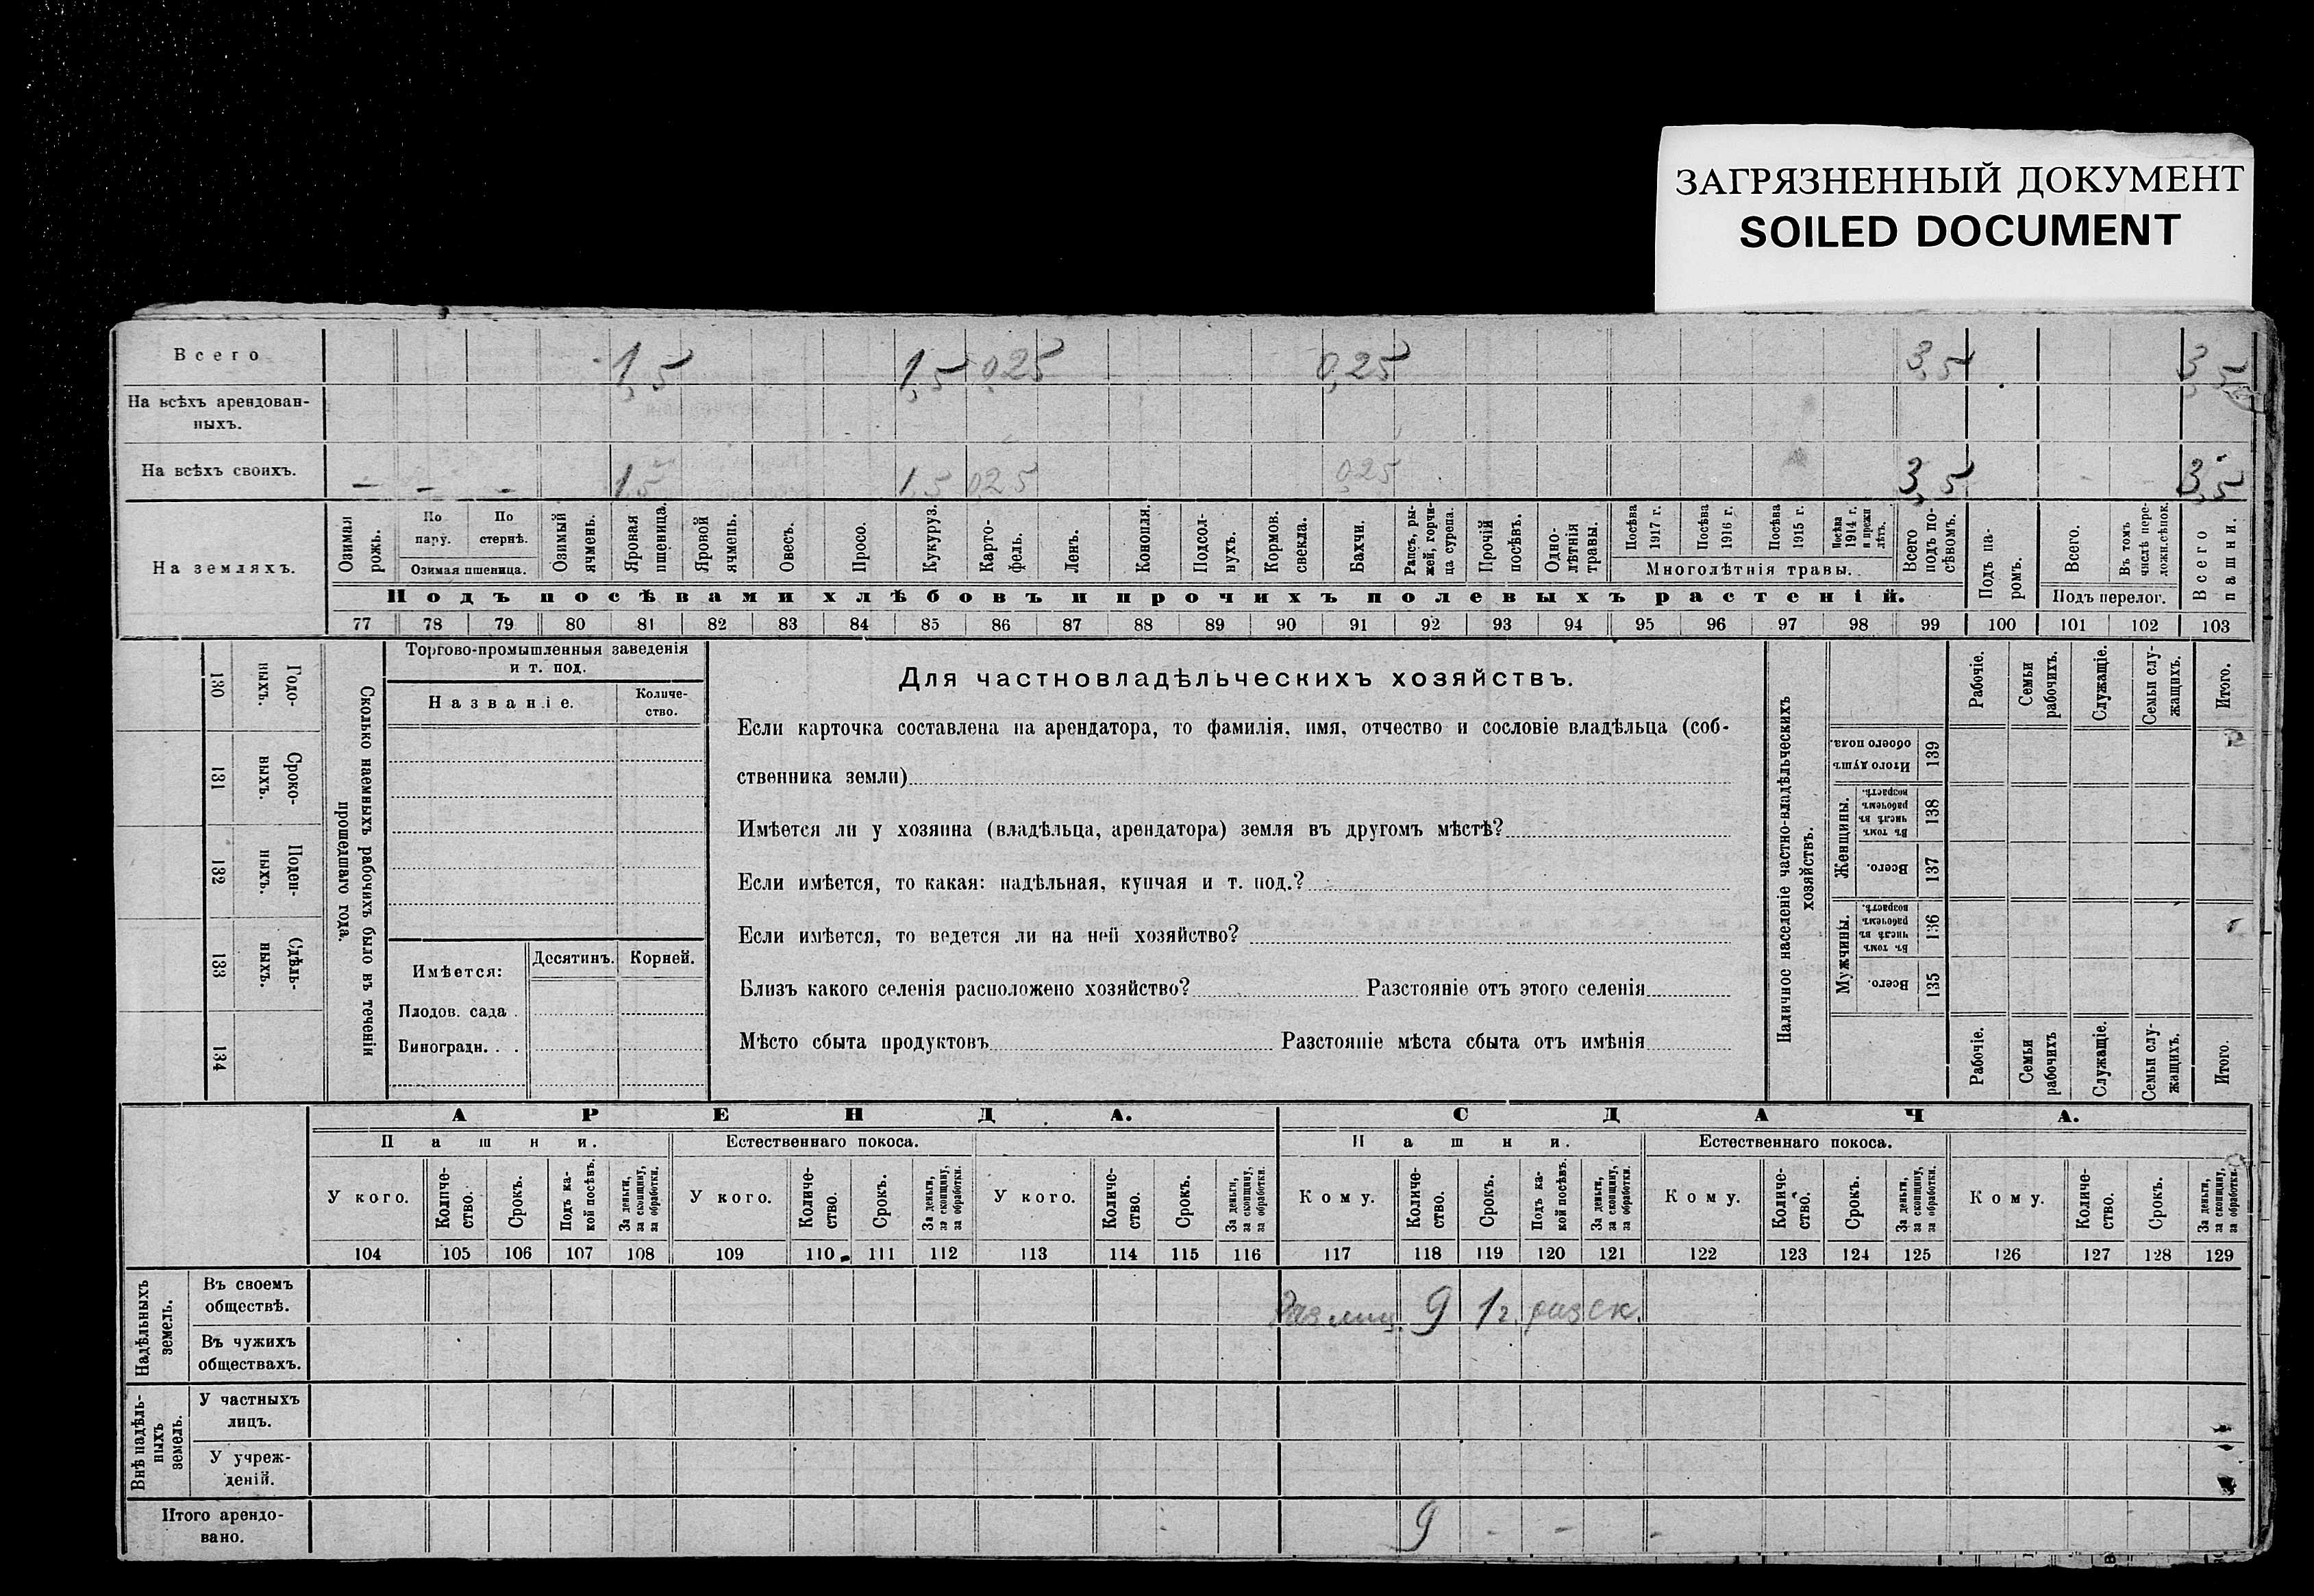 ЗАГРЯЗНЕННЫЙ ДОКУМЕНТ
SOILED DOCUMENT
Всего 1,5 1,5 0,25 0,25 3,5 3,5
На всѣхъ арендован-
ныхъ.
На всѣхъ своихъ. – – – 1,5 1,5 0,25 0,25 3,5 3,5
На земляхъ.
Озимая рожь.
По пару.
По стернѣ.
Озимая пшеница.
Озимый ячмень.
Яровая пшеница.
Яровой ячмень.
Овесъ.
Просо.
Кукуруз.
Карто-
фель.
Ленъ.
Конопля.
Подсол-
нухъ.
Кормов. свекла.
Бахчи.
Рапсъ, ры-
жей, горчи-
ца сурепа.
Прочій посѣвъ.
Одно-
лѣтнія травы.
Посѣва 1917 г.
Посѣва 1916 г.
Посѣва 1915 г.
Посѣва 1914 г. и прежн лѣтъ.
Многолѣтнія травы.
Всего подъ по-
сѣвомъ.
Подъ па-
ромъ.
Всего.
Въ томъ числѣ пере-
ложн.сѣнок.
Подъ перелог.
Всего пашни.
Подъ посѣвами хлѣбовъ и прочихъ полевыхъ растеній.
77 78 79 80 81 82 83 84 85 86 87 88 89 90 91 92 93 94 95 96 97 98 99 100 101 102 103
Сколько наемныхъ рабочихъ было въ теченіи
прошедшаго года.
Годо-
ныхъ.
130
Сроко-
выхъ.
131
Поден-
ныхъ.
132
Сдѣль-
ныхъ.
133
134
Торгово-промышленныя заведенія
и т. под.
Названіе.
Количе-
ство.
Имѣется:
Десятинъ.
Корней.
Плодов. сада .
Виноградн. . .
Для частновладѣльческихъ хозяйствъ.
Если карточка составлена на арендатора, то фамилія, имя, отчество и сословіе владѣльца (соб-
ственника земли)
Имѣется ли у хозяина (владѣльца, арендатора) земля въ другомъ мѣстѣ?
Если имѣется, то какая: надѣльная, купчая и т. под.?
Если имѣется, то ведется ли на ней хозяйство?
Близъ какого селенія расположено хозяйство? Разстояніе отъ этого селенія
Мѣсто сбыта продуктовъ Разстояніе мѣста сбыта отъ имѣнія
Наличное населеніе частно-владѣльческихъ
хозяйствъ.
Рабочіе.
Семьи рабочихъ.
Служащіе.
Семьи слу-
жащихъ.
Итого.
Итого душъ обоего пола.
139
Женщины.
Въ томъ числѣ въ рабочемъ возрастѣ.
138
Всего.
137
Мужчины.
Въ томъ числѣ въ рабочемъ возрастѣ.
136
Всего.
135
Рабочіе.
Семьи рабочихъ
Служащіе.
Семьи слу-
жащихъ.
Итого.
АРЕНДА.
СДАЧА.
Пашни.
Естественнаго покоса.
Пашни.
Естественнаго покоса.
У кого.
Количе-
ство.
Срокъ.
Подъ ка-
кой посѣвъ.
За деньги, за скопщину, за обработки.
У кого.
Количе-
ство.
Срокъ.
За деньги, за скопщину, за обработки.
У кого.
Количе-
ство.
Срокъ.
За деньги, за скопщину, за обработки.
Кому.
Количе-
ство.
Срокъ.
Подъ ка-
кой посѣвъ.
За деньги, за скопщину, за обработки.
Кому.
Количе-
ство.
Срокъ.
За деньги, за скопщину, за обработки.
Кому.
Количе-
ство.
Срокъ.
За деньги, за скопщину, за обработки.
104 105 106 107 108 109 110 111 112 113 114 115 116 117 118 119 120 121 122 123 124 125 126 127 128 129
Надѣльныхъ
земель.
Въ своемъ
обществѣ.
9 1 г. раз ск.
Въ чужихъ
обществахъ.
Внѣ надѣль-
ныхъ
земель.
У частныхъ
лицъ.
У учреж-
деній.
Итого арендо-
вано.
9 – – –